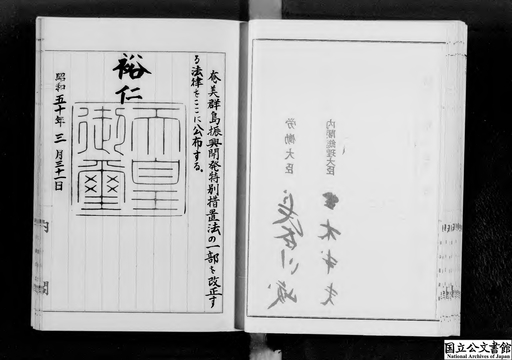 内閣総理大臣
労働大臣
奄美群島振興開発特別措置法の一部を改正す
る法律をここに公布する。
裕仁
天皇御璽
昭和五十年三月三十一日
内閣
国立公文書館
National Archives of Japan